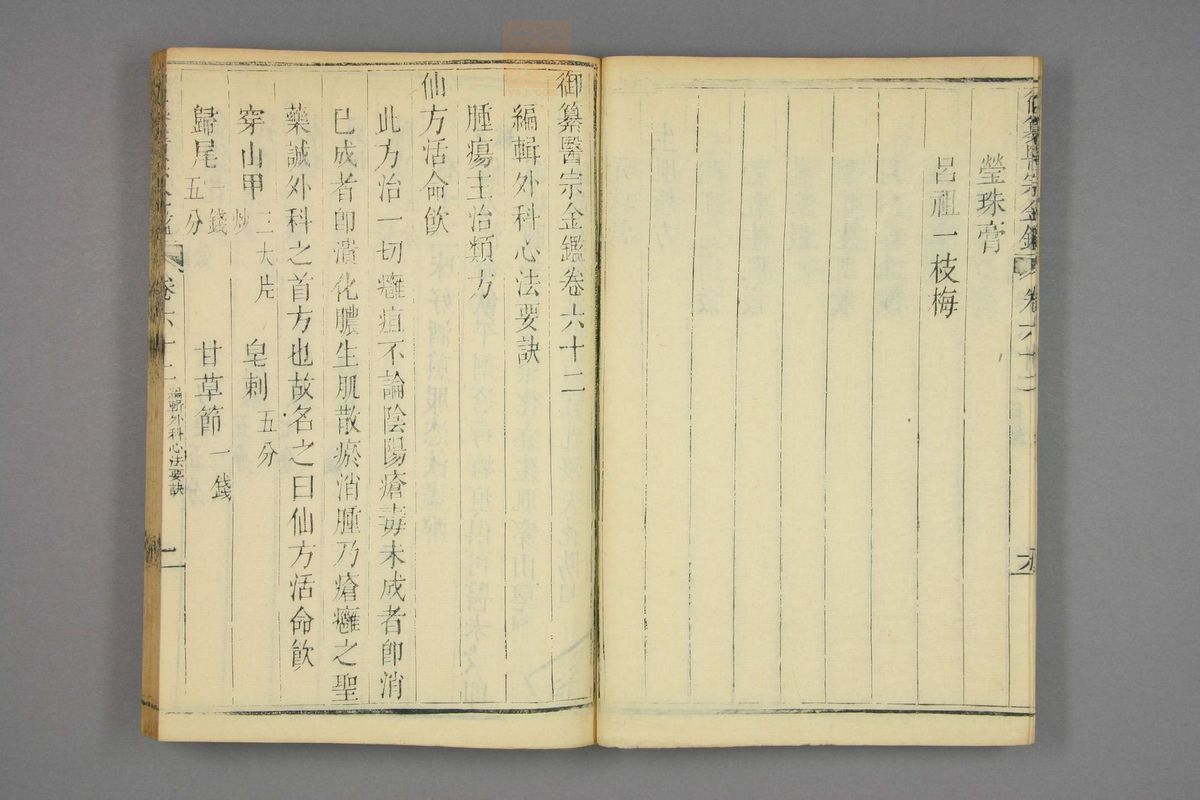 御纂醫宗金鑑 卷六十二
瑩珠膏
呂祖一枝梅
御纂醫宗金鑑卷六十二
編輯外科心法要訣
腫瘍主治類方
仙方活命飲
此方治一切癰疽不論陰陽瘡毒未成者卽消
已成者卽潰化膿生肌散瘀消腫乃瘡癰之聖
藥誠外科之首方也故名之曰仙方活命飲
穿山甲 三大片炒 皂刺 五分
歸尾 一錢五分 甘草節 一錢
卷六十二 編輯外科心法要訣 一